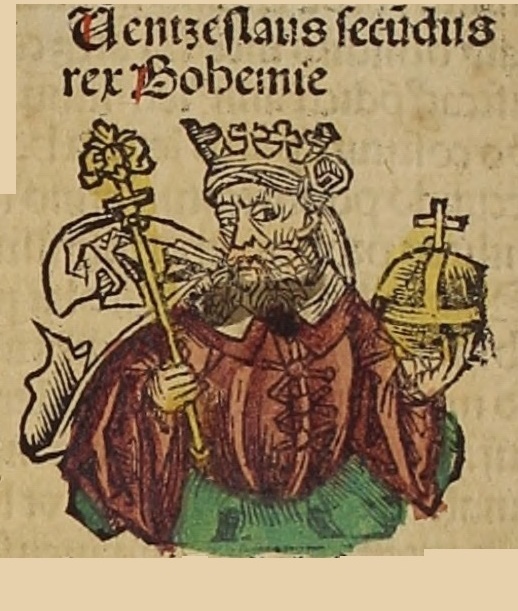 Uentzeslaus secūdus
rex Bohemie